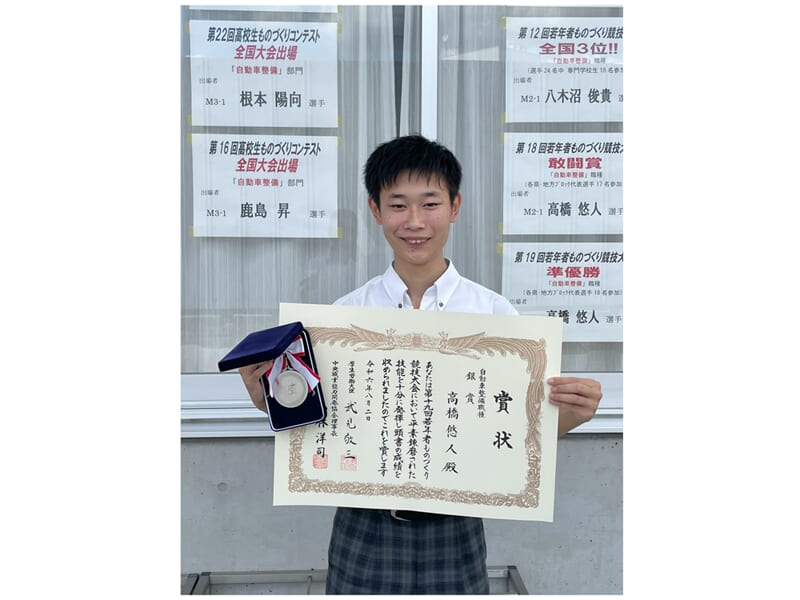 第22回高校生ものづくりコンテスト
全国大会出場
「自動車整備」部門
出場者
M3-1 根本 陽向 選手
第16回高校生ものづくりコンテスト
全国大会出場
「自動車整備」部門
出場者
M3-1 鹿島 昇 選手
第12回若年者ものづくり競技
全国3位!!
「自動車整備」職種
出場者
M2-1 八木沼 俊貴
第18回若年者ものづくり競技大
敢闘賞
「自動車整備」職種
(各県・地方ブロック代表選手17名参加
出場者
M2-1 高橋 悠人 選手
第19回若年者ものづくり競技大
準優勝
「自動車整備」職種
(各県・地方ブロック代表選手18名参加
出場者
高橋 悠人 選手
賞状
自動車整備職種
銀賞
高橋悠人 殿
あなたは第十九回若年者ものづくり
競技大会において平素錬磨された
技能を十分に発揮し頭書の成績を
収められましたのでこれを賞します
令和六年八月二日
厚生労働大臣 武見敬三
中央職業能力開発協会理事長
洋司